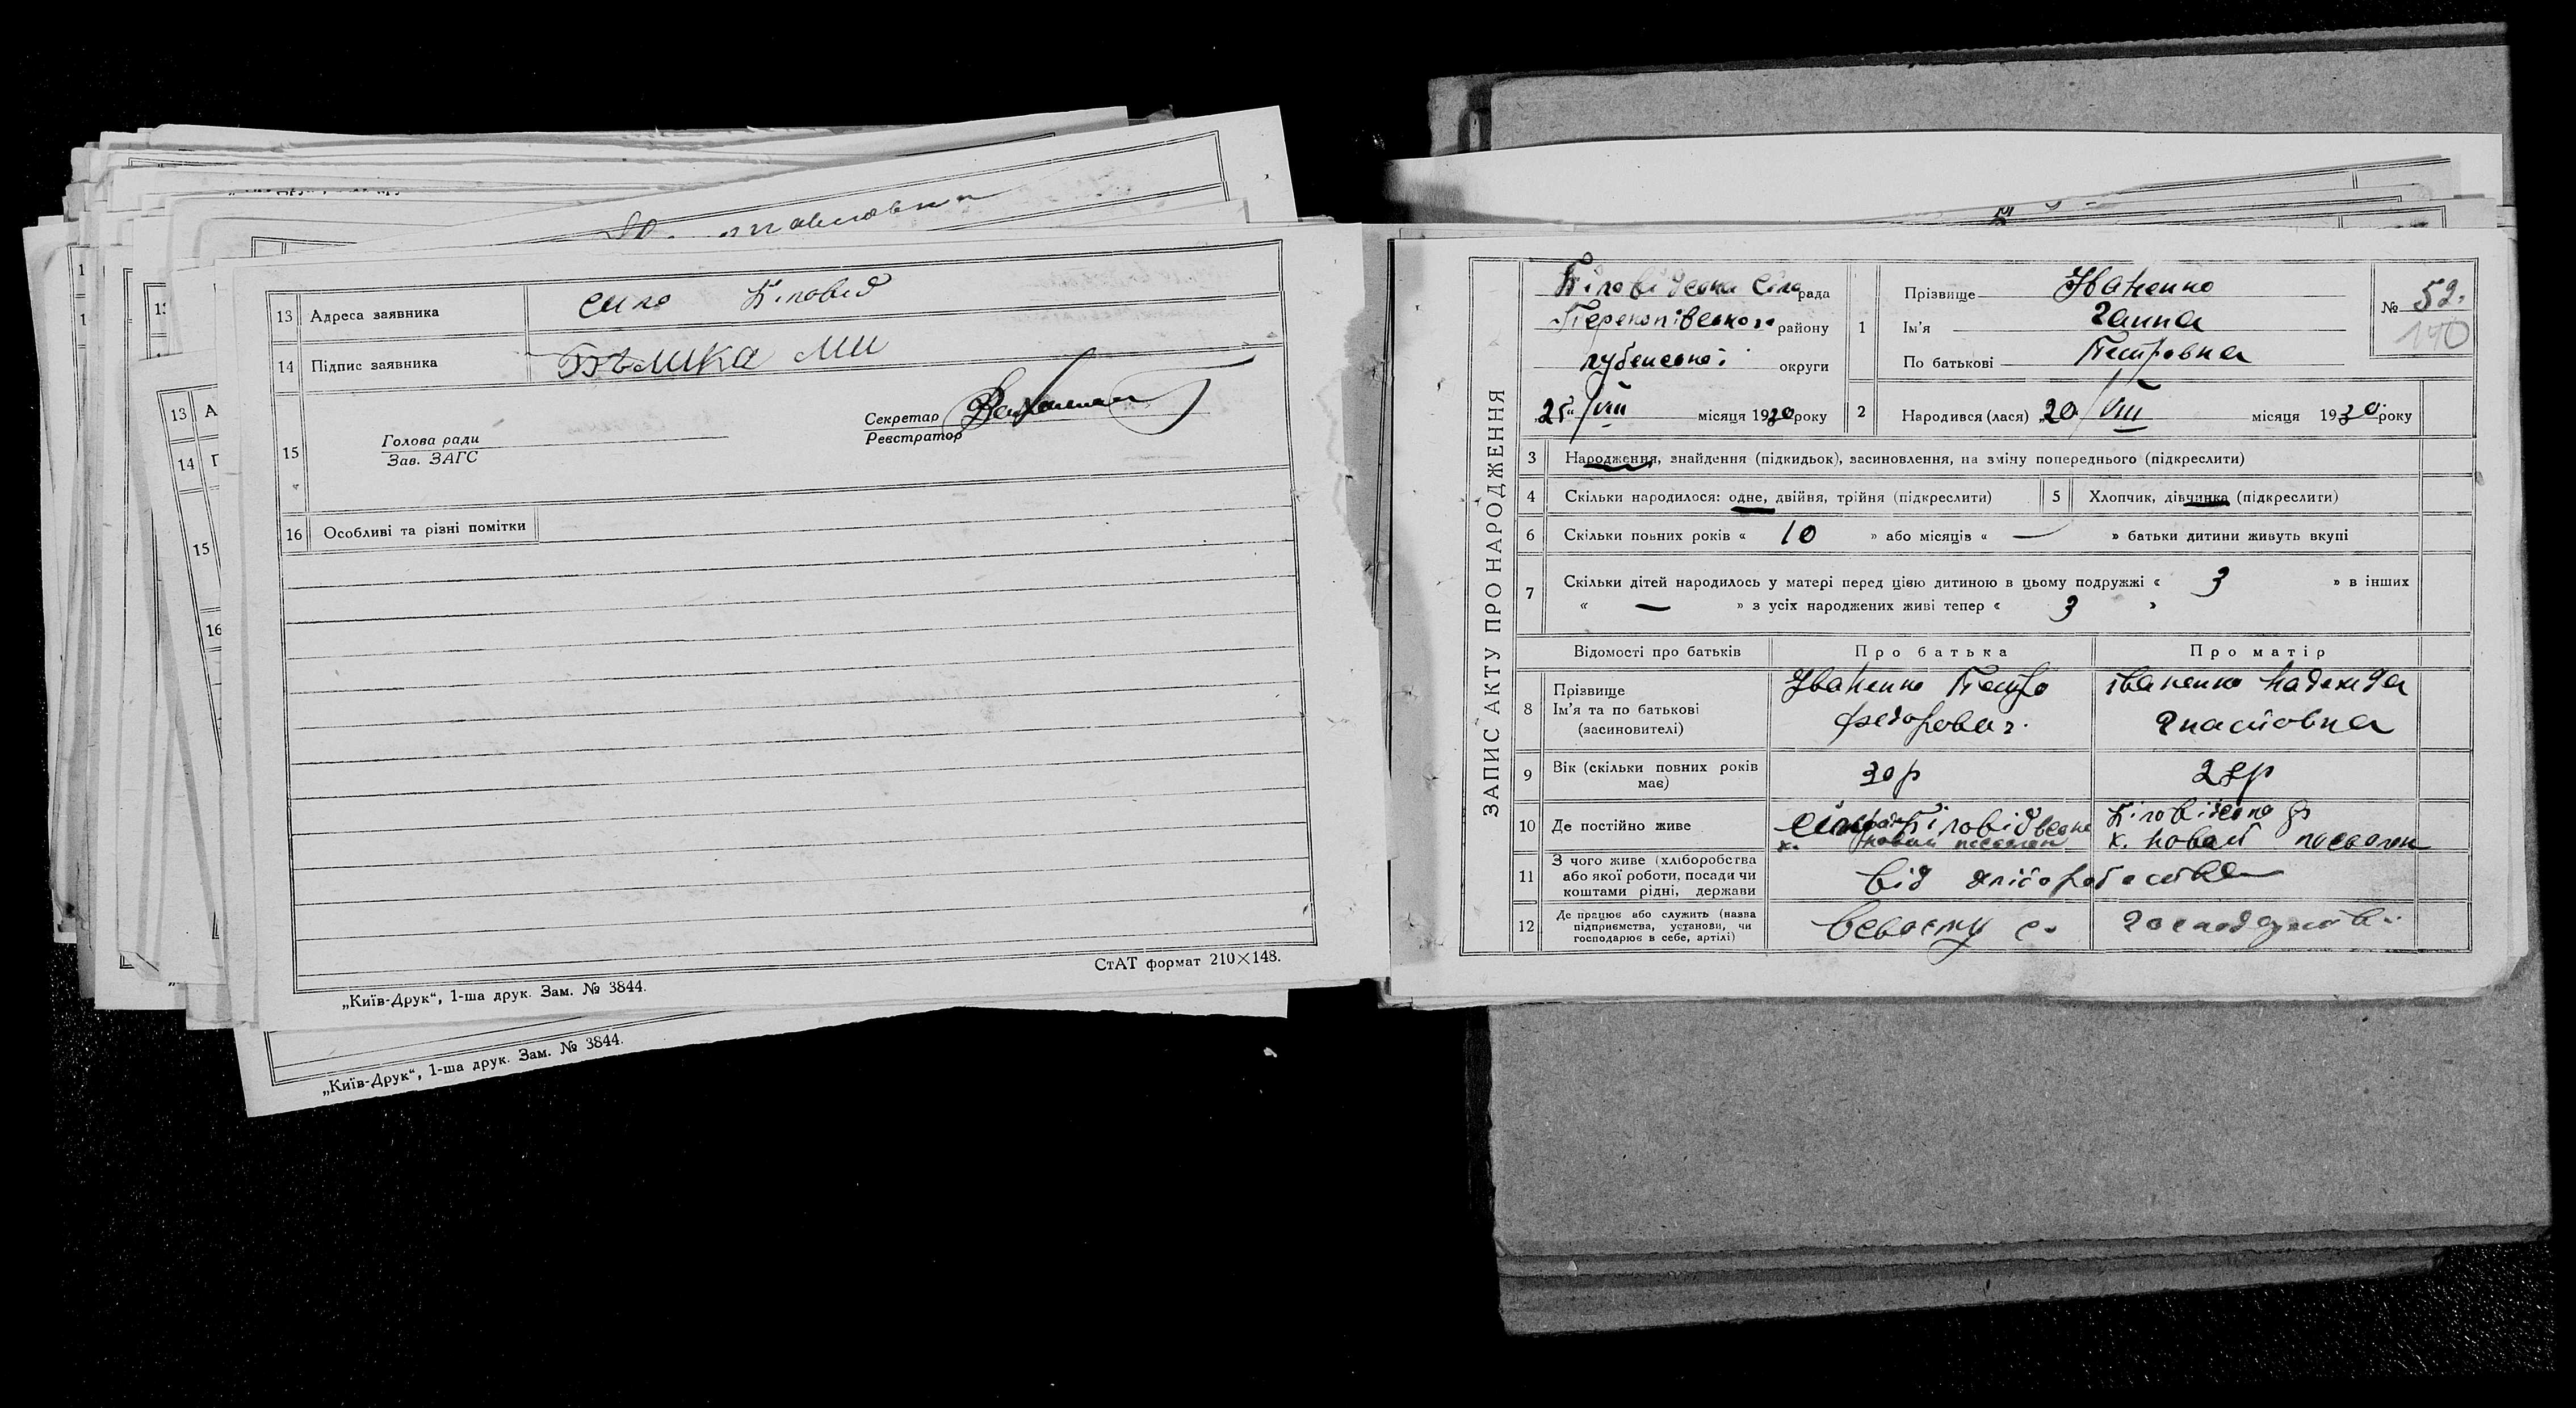 13 Адреса заявника село Біловід
14 Підпис заявника Бъмика МИ
15 Голова ради
Зав. ЗАГС
Секретар
Реєстратор
16 Особливі та різні помітки
„Київ-Друк“, 1-ша друк. Зам. № 3844.
СтАТ формат 210×148.
„Київ-Друк“, 1-ша друк. Зам. № 3844.
13 А
14 П
15
16
ЗАПИС АКТУ ПРО НАРОДЖЕННЯ
Біловідська сіль рада
Перекопівського району
Лубенської округи
25/VIII місяця 1930 року
1 Прізвище Иваненко
Ім'я Ганна
По батькові Петровна
№ 52.
110
2 Народився (лася) 20/VIII місяця 1930 року
3 Народження, знайдення (підкидьок), засиновлення, на зміну попереднього (підкреслити)
4 Скільки народилося: одне, двійня, трійня (підкреслити)
5 Хлопчик, дівчинка (підкреслити)
6 Скільки повних років « 10 » або місяців « — » батьки дитини живуть вкупі
7 Скільки дітей народилось у матері перед цією дитиною в цьому подружжі « 3 » в інших
« — » з усіх народжених живі тепер « 3 »
Відомості про батьків Про батька Про матір
8 Прізвище
Ім'я та по батькові
(засиновителі)
Иваненко Петро
Федорович
Іваненко Надежда
Гнатовна
9 Вік (скільки повних років
має)
30 р
28 р
10 Де постійно живе
Біловідська
х. новий поселок
Біловідська
х. новий поселок
11 З чого живе (хліборобства
або якої роботи, посади чи
коштами рідні, держави
від хліборобства
12 Де працює або служить (назва
підприємства, установи, чи
господарює в себе, артілі)
всвоєму с. господарстві